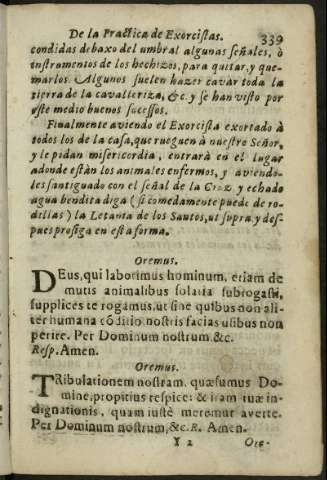 De la Practica de Exorcistas. 339
condidas debaxo del umbral algunas señales, ò
instromentos de los hechizos, para quitar, y que-
marlos. Algunos suelen hazer cavar toda la
tierra de la cavalleriza, &c. y se han visto por
este medio buenos sucessos.
Finalmente aviendo el Exorcista exortado à
todos los de la casa, que rueguen à nuestro Señor,
y le pidan misericordia, entrarà en el lugar
adonde estàn los animales enfermos, y aviendo-
les santiguado con el señal de la Cruz y echado
agua bendita diga (si comedamente puede de ro-
dillas) la Letania de los Santos, ut supra, y des-
pues prosiga en esta forma.
Oremus.
DEus, qui laboribus hominum, etiam de
mutis animalibus solatia subrogasti,
supplices te rogamus, ut sine quibus non ali-
ter humana cõditio nostris facias usibus non
perire. Per Dominum nostrum &c.
Resp. Amen.
Oremus.
TRibulationem nostram, quæsumus Do-
mine, propitius respice: & iram tuæ in-
dignationis, quam iustè meremur averte.
Per Dominum nostrum, &c. R. Amen.
Y 2 Ore-